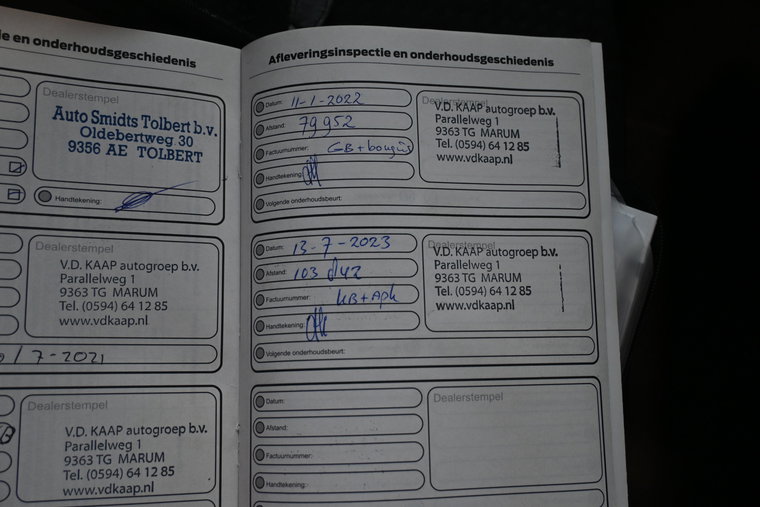 ie en onderhoudsgeschiedenis
Dealerstempel
Auto Smidts Tolbert b.v.
Oldebertweg 30
9356 AE TOLBERT
Handtekening:
Dealerstempel
V.D. KAAP autogroep b.v.
Parallelweg 1
9363 TG MARUM
Tel. (0594) 64 12 85
www.vdkaap.nl
/7-2021
Dealerstempel
V.D. KAAP autogroep b.v.
Parallelweg 1
9363 TG MARUM
Tel. (0594) 64 12 85
www.vdkaap.nl
Afleveringsinspectie en onderhoudsgeschiedenis
Datum: 11-1-2022
Afstand: 79952
Factuurnummer: GB+bougies
Handtekening:
Volgende onderhoudsbeurt:
Dealerstempel
V.D. KAAP autogroep b.v.
Parallelweg 1
9363 TG MARUM
Tel. (0594) 64 12 85
www.vdkaap.nl
Datum: 13-7-2023
Afstand: 103
Factuurnummer: KB+APK
Handtekening:
Volgende onderhoudsbeurt:
Dealerstempel
V.D. KAAP autogroep b.v.
Parallelweg 1
9363 TG MARUM
Tel. (0594) 64 12 85
www.vdkaap.nl
Datum:
Afstand:
Factuurnummer:
Handtekening:
Dealerstempel